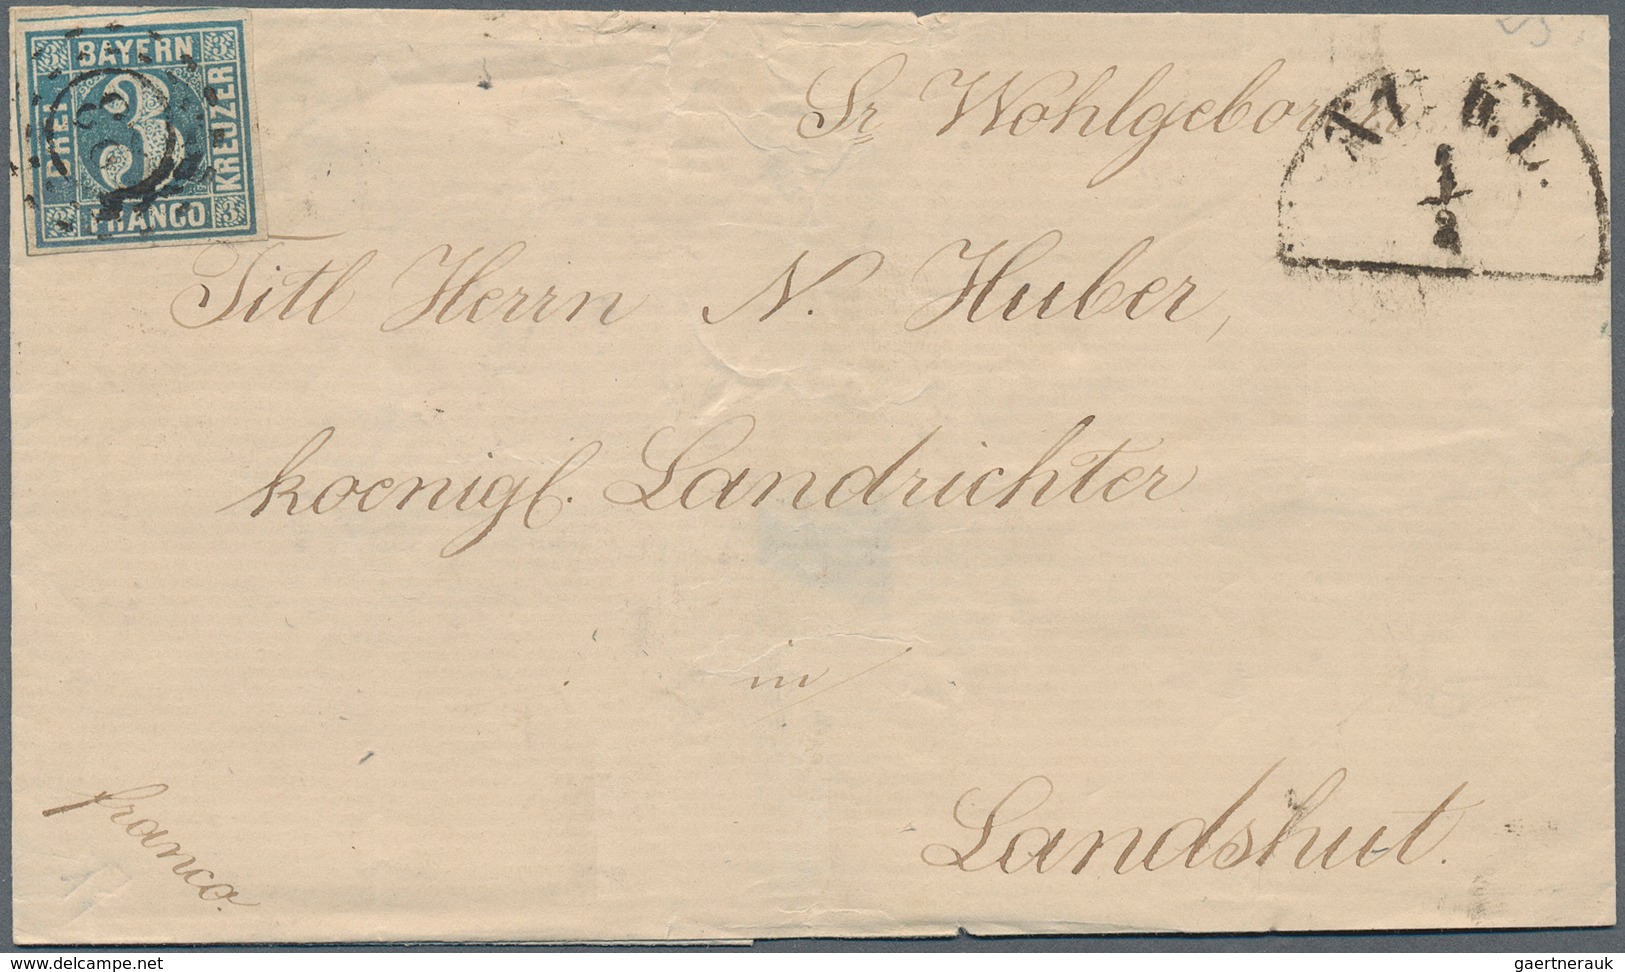 BAYERN
FREI
3
KREUZER
FRANCO
Sr Wohlgeboren
1/2
Titl Herrn N. Huber,
koenigl. Landrichter
in
Landshut.
franco.
gaertnerauk